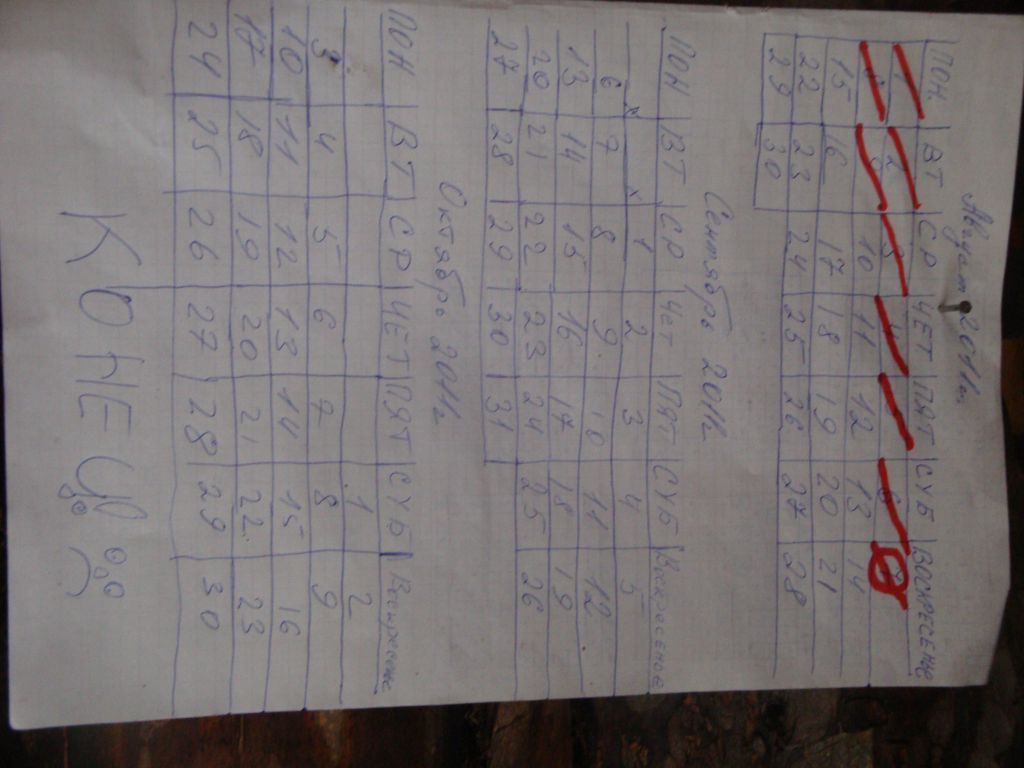 Август 2011г.
ПОН. ВТ СР ЧЕТ ПЯТ СУБ ВОСКРЕСЕНЬЕ
1 2 3 4 5 6 7
8 9 10 11 12 13 14
15 16 17 18 19 20 21
22 23 24 25 26 27 28
29 30
Сентябрь 2011г.
ПОН ВТ СР Чет ПЯТ СУБ Воскресенье
х х 1 2 3 4 5
6 7 8 9 10 11 12
13 14 15 16 17 18 19
20 21 22 23 24 25 26
27 28 29 30 31
Октябрь 2011г.
ПОН ВТ СР ЧЕТ ПЯТ СУБ Воскресенье
1 2
3 4 5 6 7 8 9
10 11 12 13 14 15 16
17 18 19 20 21 22 23
24 25 26 27 28 29 30
КОНЕЦ